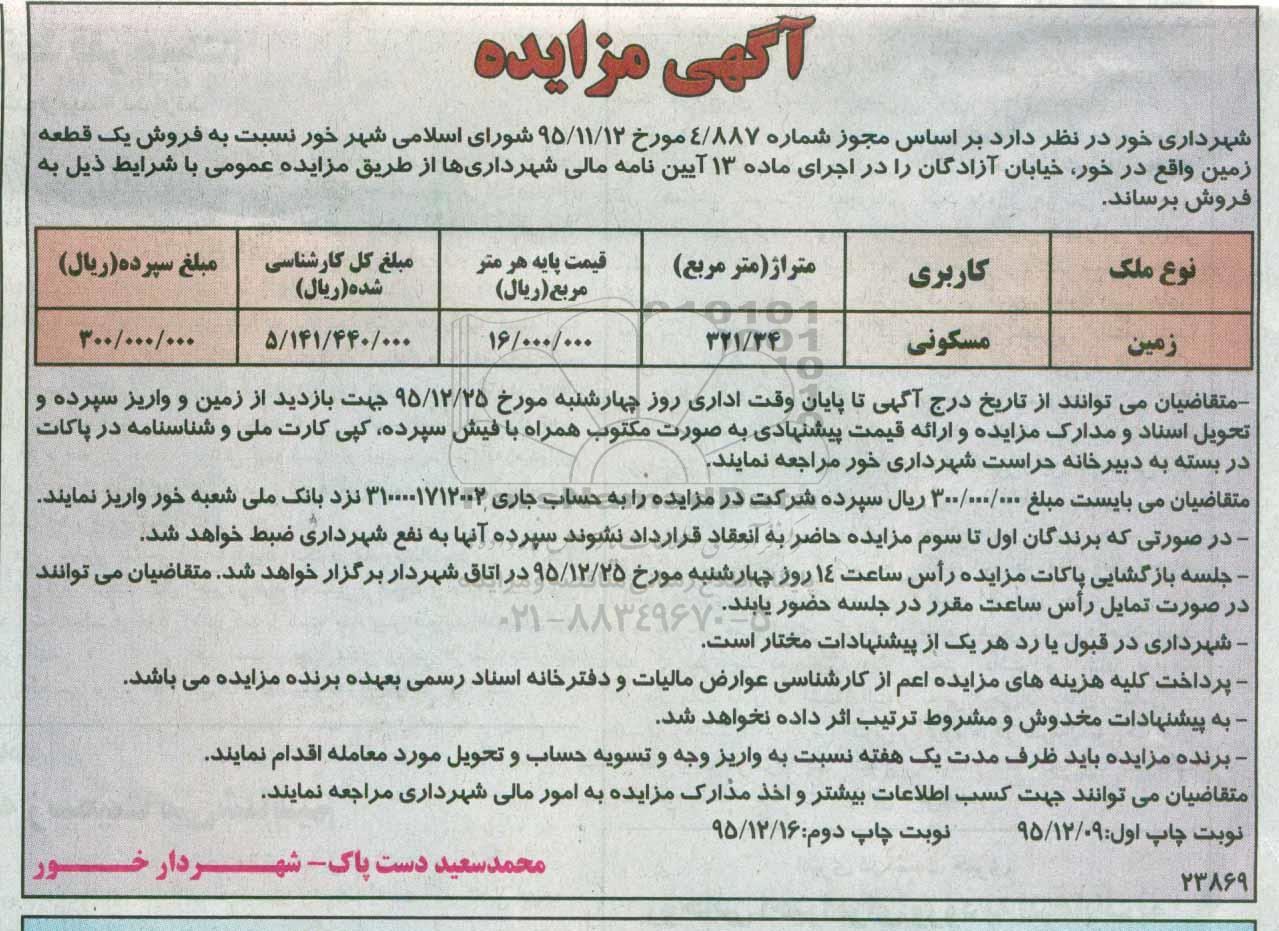 آگهی مزایده
شهرداری خور در نظر دارد بر اساس مجوز شماره ٤/٨٨٧ مورخ ٩٥/١١/١٢ شورای اسلامی شهر خور نسبت به فروش یک قطعه
زمین واقع در خور، خیابان آزادگان را در اجرای ماده ١٣ آیین نامه مالی شهرداری‌ها از طریق مزایده عمومی با شرایط ذیل به
فروش برساند.
نوع ملک | کاربری | متراژ(متر مربع) | قیمت پایه هر متر مربع(ریال) | مبلغ کل کارشناسی شده(ریال) | مبلغ سپرده(ریال)
زمین | مسکونی | ۳۲۱/۳۴ | ۱۶/۰۰۰/۰۰۰ | ۵/۱۴۱/۴۴۰/۰۰۰ | ۳۰۰/۰۰۰/۰۰۰
-متقاضیان می توانند از تاریخ درج آگهی تا پایان وقت اداری روز چهارشنبه مورخ ٩٥/١٢/٢٥ جهت بازدید از زمین و واریز سپرده و
تحویل اسناد و مدارک مزایده و ارائه قیمت پیشنهادی به صورت مکتوب همراه با فیش سپرده، کپی کارت ملی و شناسنامه در پاکات
در بسته به دبیرخانه حراست شهرداری خور مراجعه نمایند.
متقاضیان می بایست مبلغ ٣٠٠/٠٠٠/٠٠٠ ریال سپرده شرکت در مزایده را به حساب جاری ٣١٠٠٠٠١٧١٢٠٠٢ نزد بانک ملی شعبه خور واریز نمایند.
- در صورتی که برندگان اول تا سوم مزایده حاضر به انعقاد قرارداد نشوند سپرده آنها به نفع شهرداری ضبط خواهد شد.
- جلسه بازگشایی پاکات مزایده رأس ساعت ١٤ روز چهارشنبه مورخ ٩٥/١٢/٢٥ در اتاق شهردار برگزار خواهد شد. متقاضیان می توانند
در صورت تمایل رأس ساعت مقرر در جلسه حضور یابند.
٠٢١-٨٨٣٤٩٦٧٠-٥
- شهرداری در قبول یا رد هر یک از پیشنهادات مختار است.
- پرداخت کلیه هزینه های مزایده اعم از کارشناسی عوارض مالیات و دفترخانه اسناد رسمی بعهده برنده مزایده می باشد.
- به پیشنهادات مخدوش و مشروط ترتیب اثر داده نخواهد شد.
- برنده مزایده باید ظرف مدت یک هفته نسبت به واریز وجه و تسویه حساب و تحویل مورد معامله اقدام نمایند.
متقاضیان می توانند جهت کسب اطلاعات بیشتر و اخذ مدارک مزایده به امور مالی شهرداری مراجعه نمایند.
نوبت چاپ اول:٩٥/١٢/٠٩ نوبت چاپ دوم:٩٥/١٢/١٦
محمدسعید دست پاک- شهردار خور
٢٣٨٦٩